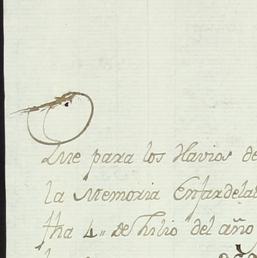 Que para los Navios de
la Memoria Enfardelad
fha 4,, de Julio del año